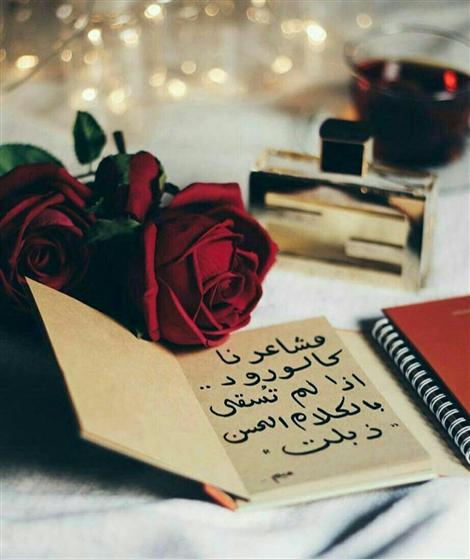 مشاعرنا
كالورود..
اذا لم تُسقى
بالكلام الحسن
"ذبلت"